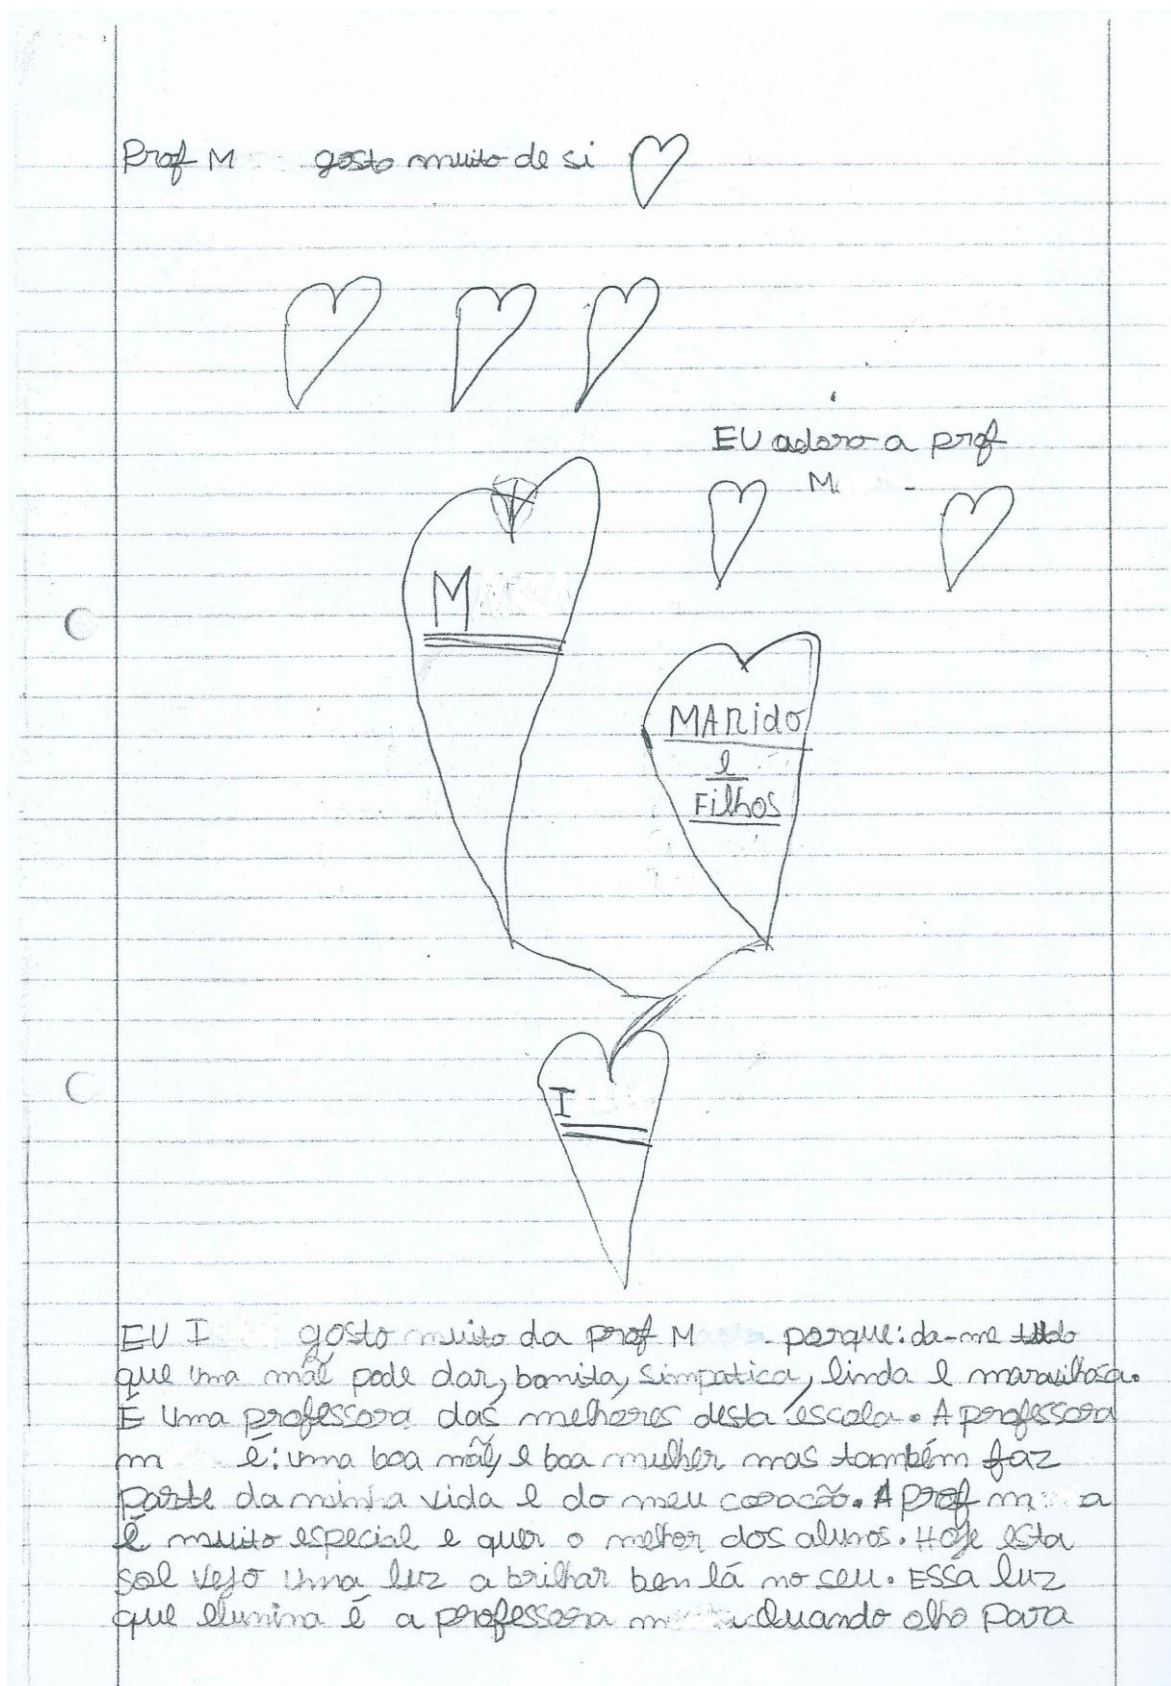 Prof M gosto muito de si
EU adoro a prof
M.
M
MARido
e
Filhos
I
EU I gosto muito da prof M. porque: da-me tudo
que uma mãe pode dar, bonita, simpatica, linda e maravilhosa.
É uma professora das melhores desta escola. A professora
m é: uma boa mãe, e boa mulher mas também faz
parte da minha vida e do meu coracão. A prof m a
é muito especial e quer o melhor dos alunos. Hoje esta
sol vejo uma luz a brilhar ben lá no seu. Essa luz
que elumina é a professora m Quando olho para